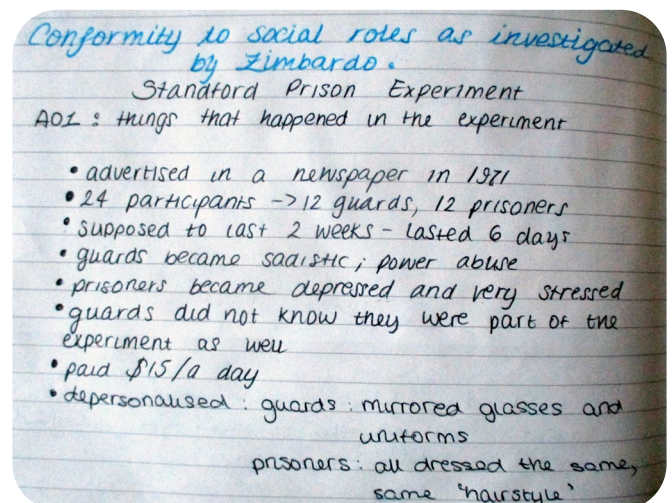 Conformity to social roles as investigated
by Zimbardo.
Standford Prison Experiment
AO1 : things that happened in the experiment
• advertised in a newspaper in 1971
• 24 participants -> 12 guards, 12 prisoners
• supposed to last 2 weeks - lasted 6 days
• guards became sadistic ; power abuse
• prisoners became depressed and very stressed
• guards did not know they were part of the
experiment as well
• paid $15/a day
• depersonalised : guards : mirrored glasses and
uniforms
prisoners : all dressed the same,
same 'hairstyle'